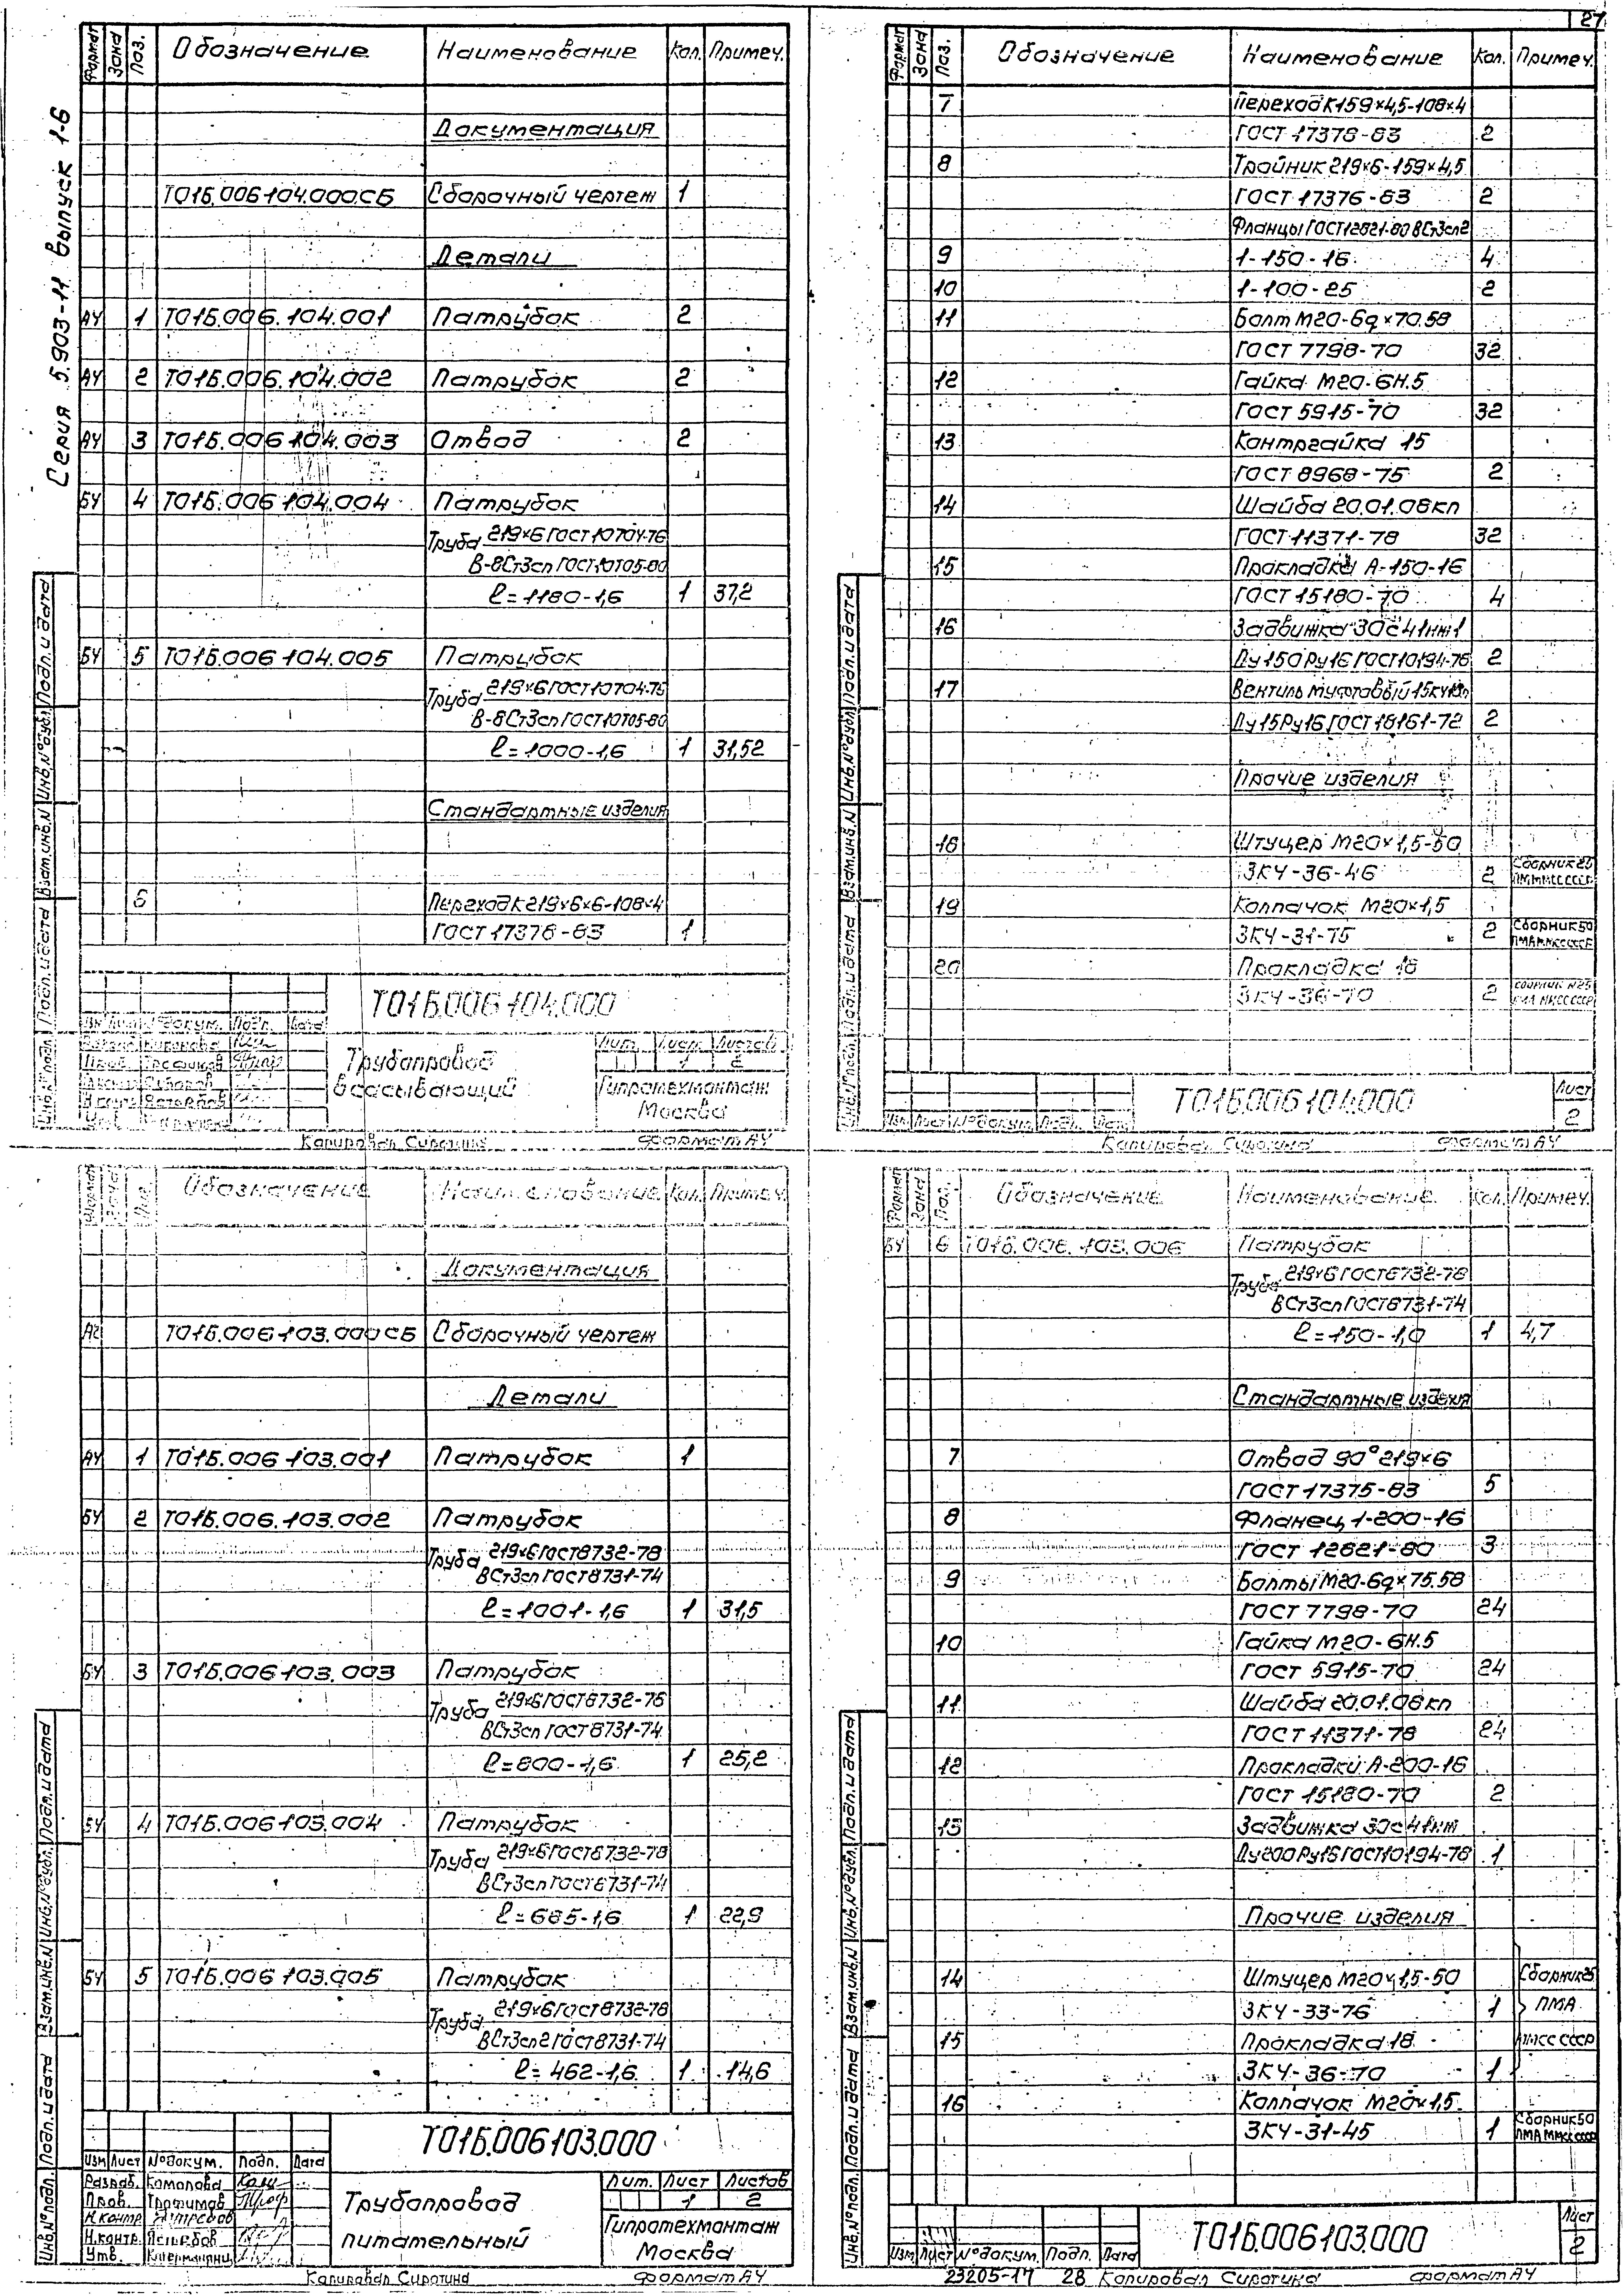 27
Серия 5.903-11 выпуск 1-6
Формат Зона Поз. Обозначение Наименование Кол. Примеч.
Документация
Т01Б.006.104.000СБ Сборочный чертеж 1
Детали
А4 1 Т01Б.006.104.001 Патрубок 2
А4 2 Т01Б.006.104.002 Патрубок 2
А4 3 Т01Б.006.104.003 Отвод 2
БЧ 4 Т01Б.006.104.004 Патрубок
Труба 219×6 ГОСТ 10704-76
В-8Ст3сп ГОСТ 10705-80
ℓ=1180-1,6 1 37,2
БЧ 5 Т01Б.006.104.005 Патрубок
Труба 219×6 ГОСТ 10704-76
В-8Ст3сп ГОСТ 10705-80
ℓ=1000-1,6 1 31,52
Стандартные изделия
6 Переход К219×6-108×4
ГОСТ 17378-83 1
Т01Б.006.104.000
Изм Лист № докум. Подп. Дата
Трубопровод
всасывающий
Лит. Лист Листов
1 2
Гипротехмонтаж
Москва
Копировал Сиротина Формат А4
Инв.№подл. Подп.и дата Взам.инв.№ Инв.№дубл. Подп.и дата
Формат Зона Поз. Обозначение Наименование Кол. Примеч.
7 Переход К159×4,5-108×4
ГОСТ 17378-83 2
8 Тройник 219×6-159×4,5
ГОСТ 17376-83 2
Фланцы ГОСТ 12821-80 ВСт3сп2
9 1-150-16 4
10 1-100-25 2
11 Болт М20-6g×70.58
ГОСТ 7798-70 32
12 Гайка М20-6Н.5
ГОСТ 5915-70 32
13 Контргайка 15
ГОСТ 8968-75 2
14 Шайба 20.01.08кп
ГОСТ 11371-78 32
15 Прокладка А-150-16
ГОСТ 15180-70 4
16 Задвижка 30с41нж1
Ду150 Ру16 ГОСТ 10194-78 2
17 Вентиль муфтовый
Ду15 Ру16 ГОСТ 18161-72 2
Прочие изделия
18 Штуцер М20×1,5-50
ЗК4-36-46 2 Сборник 25
19 Колпачок М20×1,5
ЗК4-31-75 2 Сборник 50
20 Прокладка 18
ЗК4-36-70 2
Т01Б.006.104.000
Лист
2
Изм Лист № докум. Подп. Дата
Копировал Сиротина Формат А4
Инв.№подл. Подп.и дата Взам.инв.№ Инв.№дубл. Подп.и дата
Формат Зона Поз. Обозначение Наименование Кол. Примеч.
Документация
А2 Т01Б.006.103.000СБ Сборочный чертеж
Детали
А4 1 Т01Б.006.103.001 Патрубок 1
БЧ 2 Т01Б.006.103.002 Патрубок
Труба 219×6 ГОСТ 8732-78
ВСт3сп ГОСТ 8731-74
ℓ=1001-1,6 1 31,5
БЧ 3 Т01Б.006.103.003 Патрубок
Труба 219×6 ГОСТ 8732-78
ВСт3сп ГОСТ 8731-74
ℓ=800-1,6 1 25,2
БЧ 4 Т01Б.006.103.004 Патрубок
Труба 219×6 ГОСТ 8732-78
ВСт3сп ГОСТ 8731-74
ℓ=685-1,6 1 22,9
БЧ 5 Т01Б.006.103.005 Патрубок
Труба 219×6 ГОСТ 8732-78
ВСт3сп2 ГОСТ 8731-74
ℓ=462-1,6 1 14,6
Т01Б.006.103.000
Изм Лист № докум. Подп. Дата
Разраб. Комолова
Пров. Трофимов
Н.контр.
Н.контр. Ястребов
Утв.
Трубопровод
питательный
Лит. Лист Листов
1 2
Гипротехмонтаж
Москва
Копировал Сиротина Формат А4
Инв.№подл. Подп.и дата Взам.инв.№ Инв.№дубл. Подп.и дата
Формат Зона Поз. Обозначение Наименование Кол. Примеч.
БЧ 6 Т01Б.006.103.006 Патрубок
Труба 219×6 ГОСТ 8732-78
ВСт3сп ГОСТ 8731-74
ℓ=150-1,0 1 4,7
Стандартные изделия
7 Отвод 90° 219×6
ГОСТ 17375-83 5
8 Фланец 1-200-16
ГОСТ 12821-80 3
9 Болты М20-6g×75.58
ГОСТ 7798-70 24
10 Гайка М20-6Н.5
ГОСТ 5915-70 24
11 Шайба 20.01.08кп
ГОСТ 11371-78 24
12 Прокладки А-200-16
ГОСТ 15180-70 2
13 Задвижка 30с41нж
Ду200 Ру16 ГОСТ 10194-78 1
Прочие изделия
14 Штуцер М20×1,5-50 Сборник 25
ЗК4-33-76 1 ПМА
15 Прокладка 18 ММСС СССР
ЗК4-36-70 1
16 Колпачок М20×1,5
ЗК4-31-45 1 Сборник 50 ПМА ММСС СССР
Т01Б.006.103.000
Лист
2
Изм Лист № докум. Подп. Дата
23205-17 28 Копировал Сиротина Формат А4
Инв.№подл. Подп.и дата Взам.инв.№ Инв.№дубл. Подп.и дата